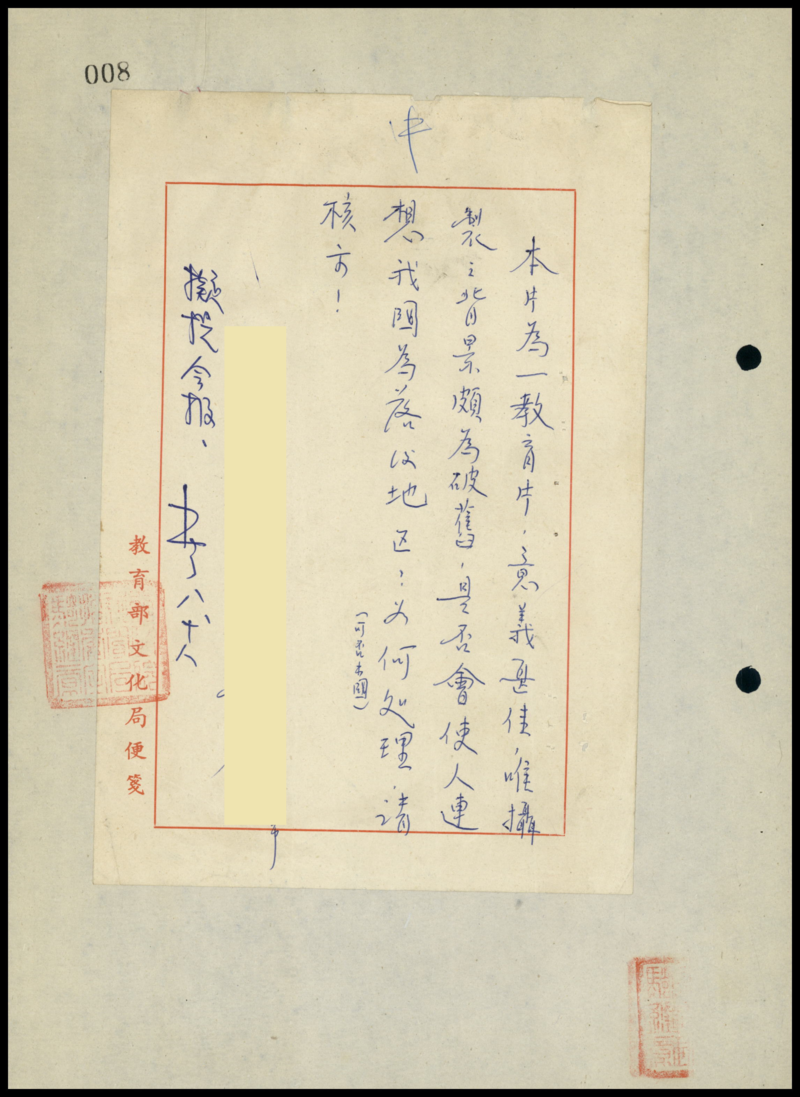 008
中
本片為一教育片，意義甚佳，唯攝
製之背景頗為破舊，是否會使人連
想我國為落後地区？如何処理，請
(可否出國)
核示！
擬提会报、
八十八
教育部文化局便箋